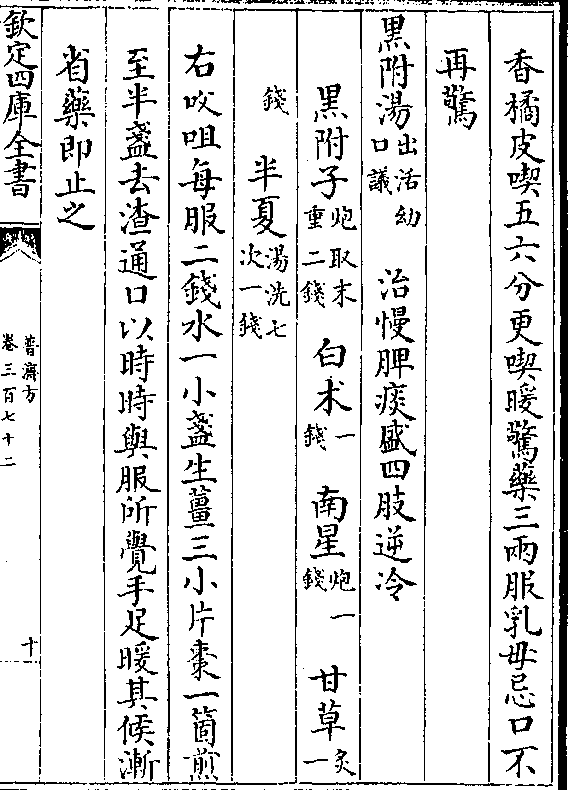 香橘皮喫五六分更喫暖驚藥三兩服乳母忌口不
再驚
黑附湯出活幼口議 治慢脾痰盛四肢逆冷
黑附子炮取末重二錢 白术一錢 南星炮一錢 甘草炙一
錢 半夏湯洗七次一錢
右㕮咀每服二錢水一小盞生薑三小片棗一箇煎
至半盞去渣通口以時時與服所覺手足暖其候漸
省藥即止之
欽定四庫全書
普濟方
卷三百七十二
十